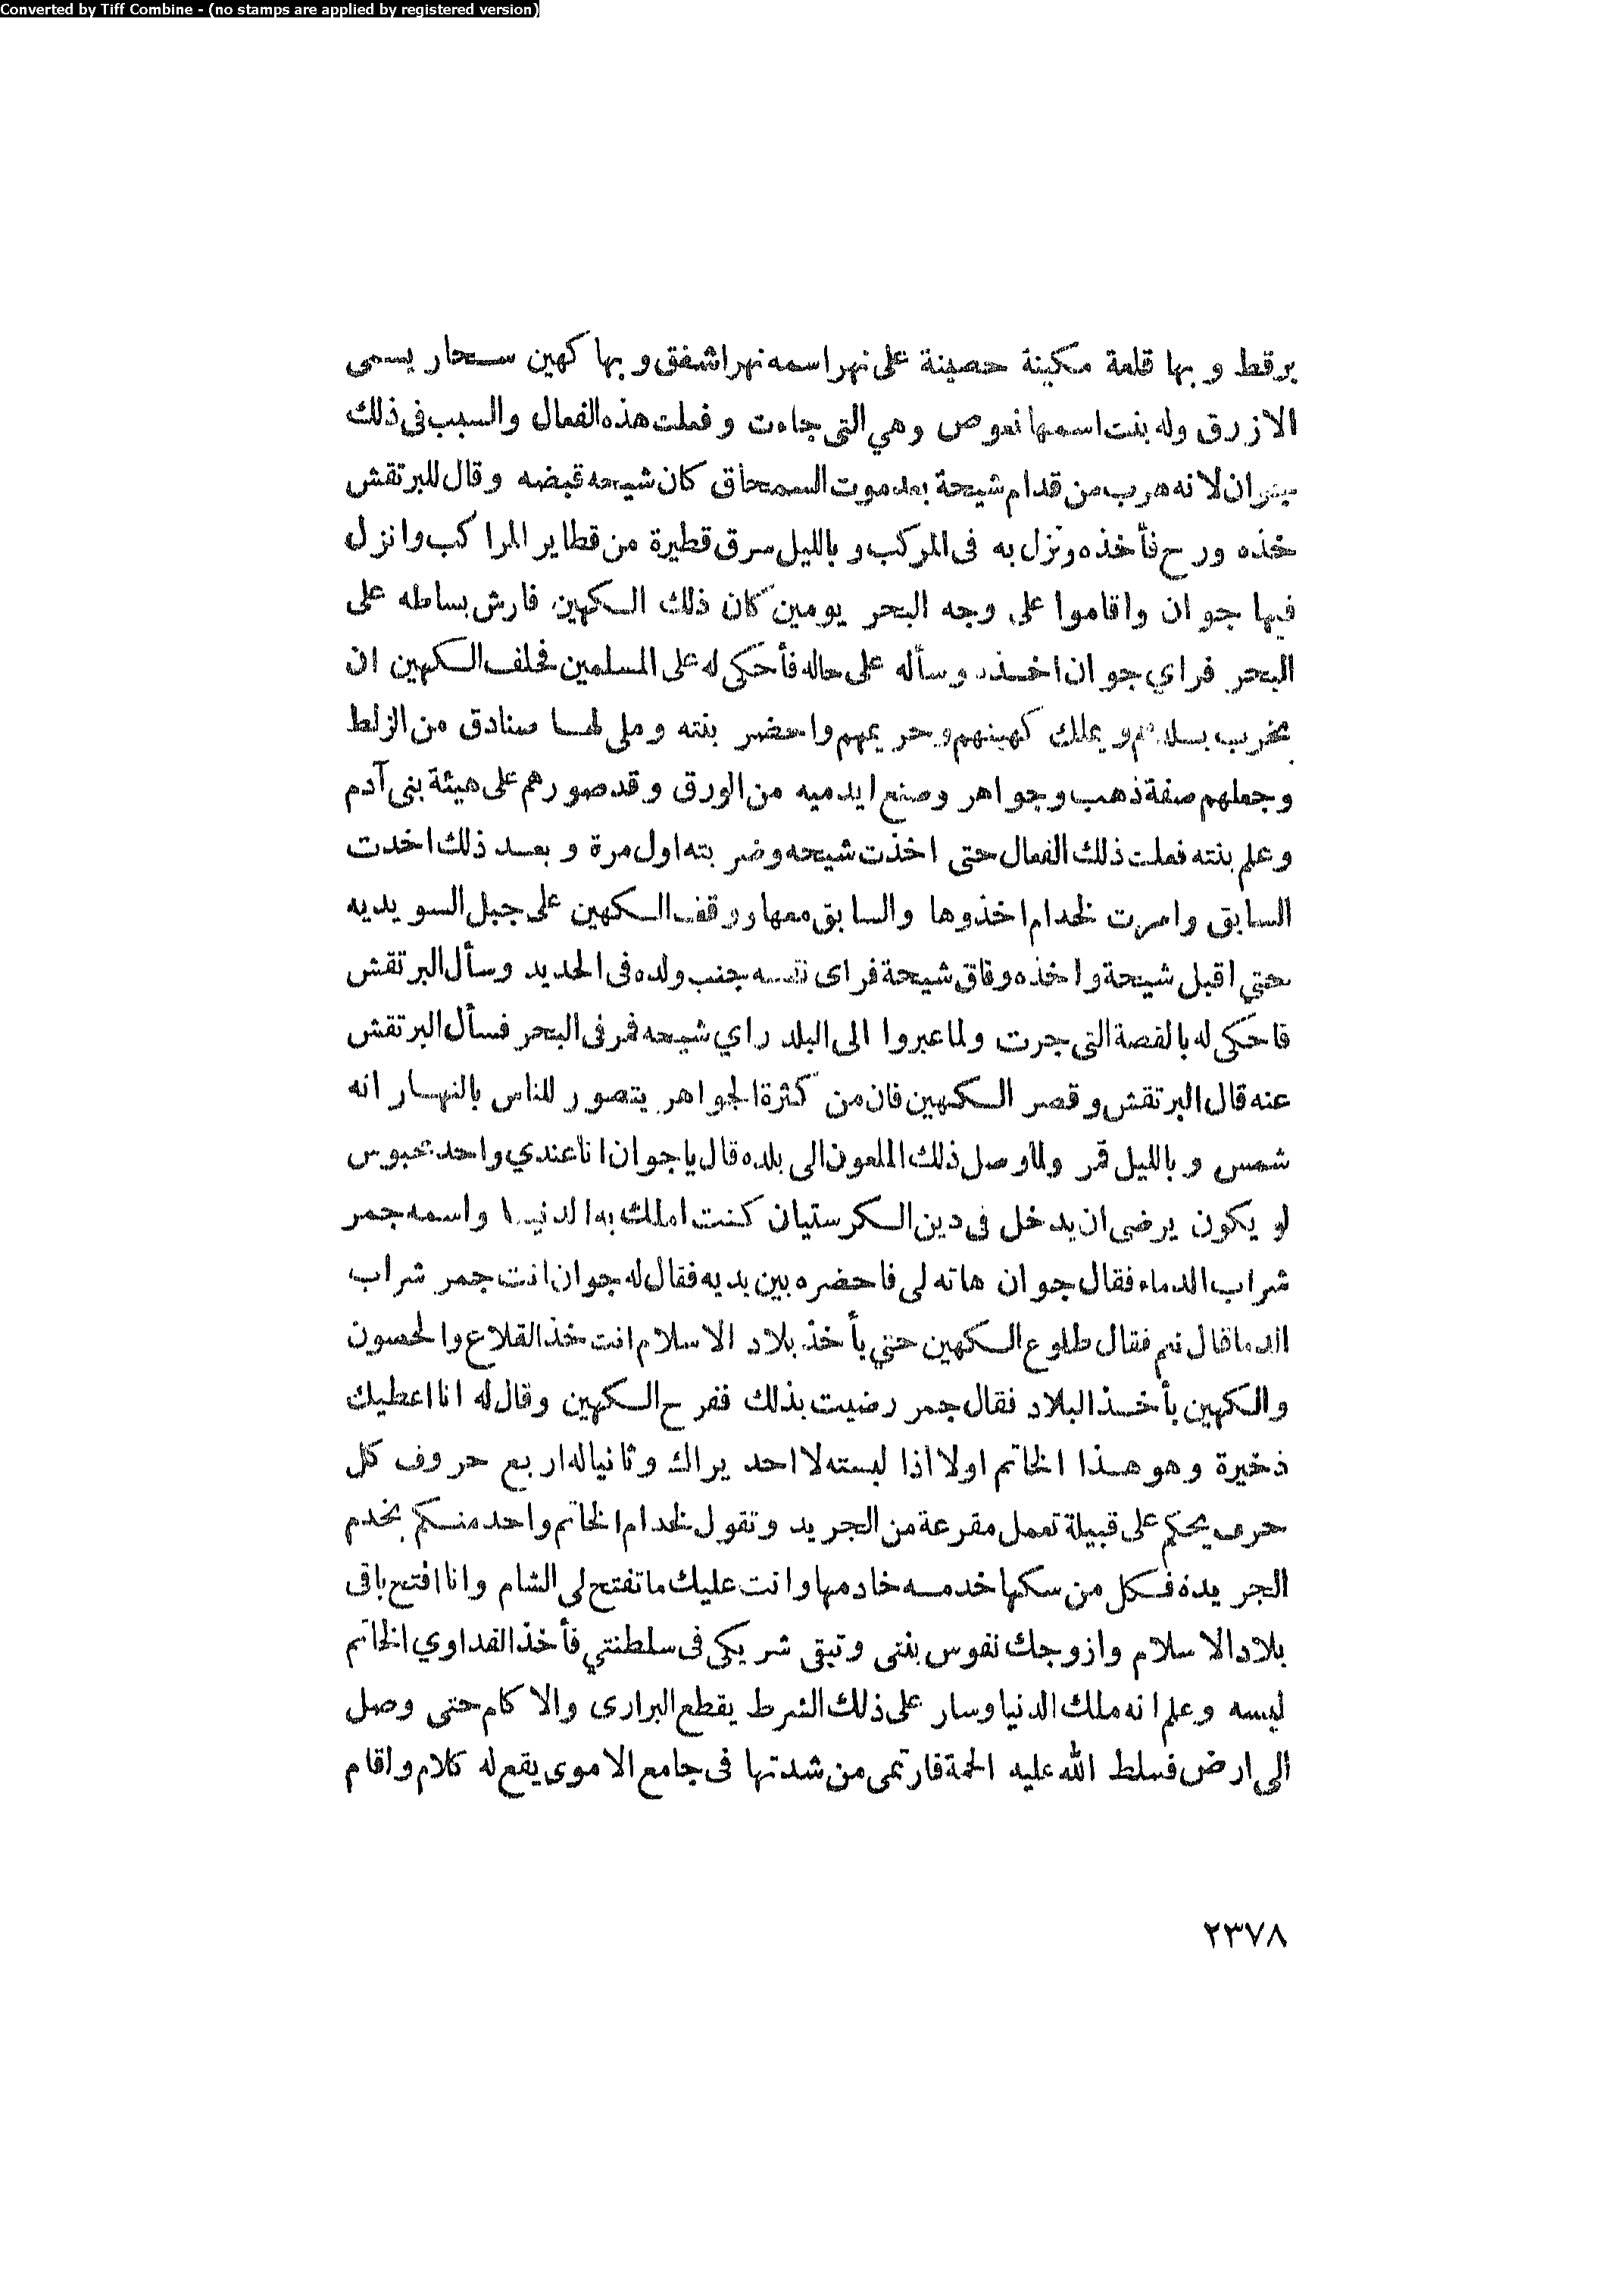 Converted by Tiff Combine - (no stamps are applied by registered version)
برقط وبها قلعة مكينة حصينة على نهر اسمه نهر اشفق وبها كهين سحار يسمى
الازرق وله بنت اسمها نعوص وهي التى جاءت وفعلت هذه الفعال والسبب فى ذلك
جوان لانه هرب من قدام شيحة بعد موت السمحاق كان شيحه قبضه وقال للبرتقش
خذه ورح فأخذه ونزل به فى المركب وبالليل سرق قطيرة من قطاير المراكب وانزل
فيها جوان واقاموا على وجه البحر يومين كان ذلك الكهين فارش بساطه على
البحر فراي جوان اخذه وسأله على حاله فأحكى له على المسلمين فحلف الكهين ان
يخرب بلادهم ويملك كهينهم وحريمهم واحضر بنته وملى لها صنادق من الزلط
وجعلهم صفة ذهب وجواهر وصنع ايدميه من الورق وقد صورهم على هيئة بنى آدم
وعلم بنته فعلت ذلك الفعال حتى اخذت شيحه وضربته اول مرة وبعد ذلك اخدت
السابق وامرت لخدام اخذوها والسابق معها ووقف الكهين على جبل السويديه
حتى اقبل شيحة واخذه وفاق شيحة فراى نفسه بجنب ولده فى الحديد وسأل البرتقش
فاحكى له بالقصة التى جرت ولما عبروا الى البلد راي شيحه قمر فى البحر فسأل البرتقش
عنه قال البرتقش وقصر الكهين فان من كثرة الجواهر يتصور للناس بالنهار انه
شمس وبالليل قمر ولما وصل ذلك الملعون الى بلده قال ياجوان انا عندي واحد محبوس
لو يكون يرضى ان يدخل فى دين الكرستيان كنت املك به الدنيا واسمه جمر
شراب الدماء فقال جوان هاته لى فاحضره بين يديه فقال له جوان انت جمر شراب
الدما قال نعم فقال طلوع الكهين حتي يأخذ بلاد الاسلام انت خذ القلاع والحصون
والكهين يأخذ البلاد فقال جمر رضيت بذلك ففرح الكهين وقال له انا اعطيك
ذخيرة وهو هذا الخاتم اولا اذا لبسته لا احد يراك وثانيا له اربع حروف كل
حرف يحكم على قبيلة تعمل مقرعة من الجريد وتقول لخدام الخاتم واحد منكم يخدم
الجريدة فكل من سكها خدمه خادمها وانت عليك ما تفتح لى الشام وانا افتح باقى
بلاد الاسلام وازوجك نفوس بنتى وتبقى شريكى فى سلطنتي فأخذ الفداوي الخاتم
لبسه وعلم انه ملك الدنيا وسار على ذلك الشرط يقطع البرارى والاكام حتى وصل
الى ارض فسلط الله عليه الحمة فارتمى من شدتها فى جامع الاموى يقع له كلام واقام
٢٣٧٨